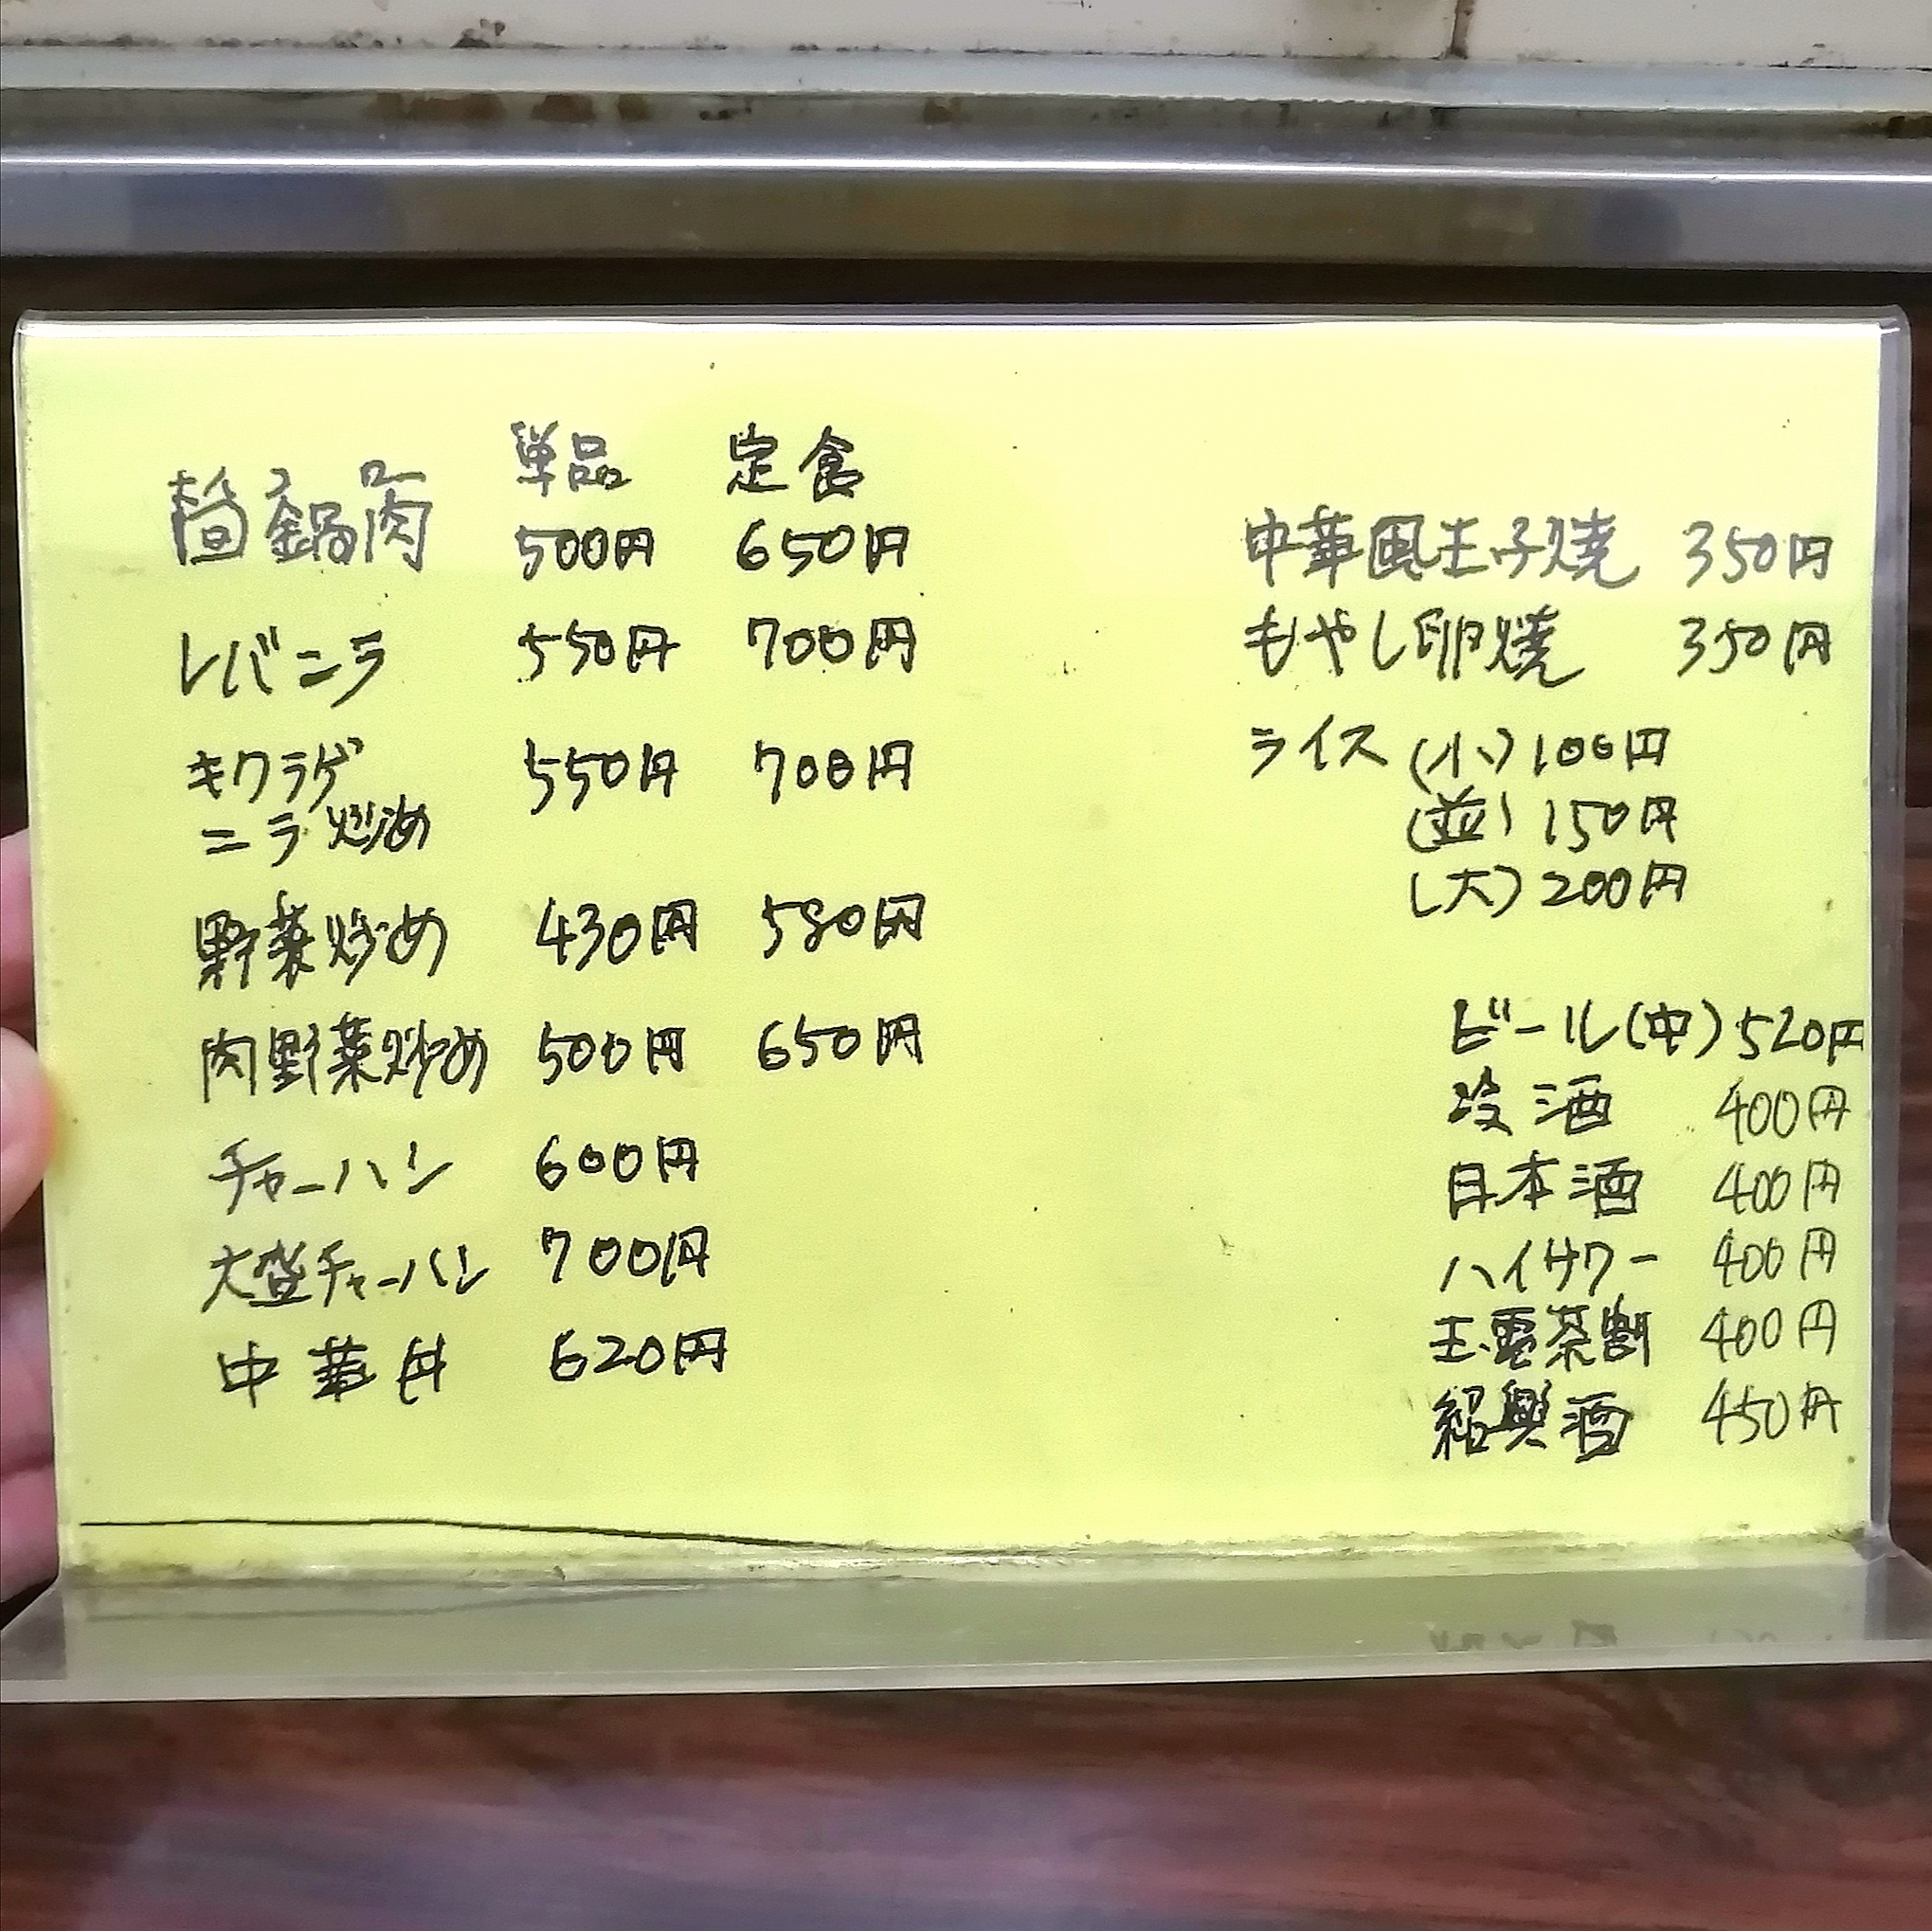 単品 定食
ホイコーロー
回鍋肉 500円 650円
レバニラ 550円 700円
キクラゲ 550円 700円
ニラ炒め
野菜炒め 430円 580円
肉野菜炒め 500円 650円
チャーハン 600円
大盛チャーハン 700円
中華丼 620円
中華風玉子焼 350円
もやし卵焼 350円
ライス (小) 100円
(並) 150円
(大) 200円
ビール(中) 520円
冷酒 400円
日本酒 400円
ハイサワー 400円
玉露茶割 400円
紹興酒 450円